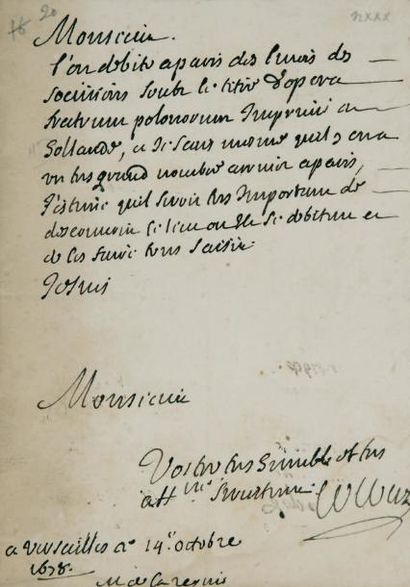 Monsieur.
l'on debite a paris des livres des
sociniens soubz le titre d'opera
fratrum polonorum Imprimé en
hollande, et Je scais mesme quil y en a
un tres grand nombre arrivé a paris,
J'estime quil seroit tres Important de
descouvrir le lieu ou Ils se debitent et
de les faire tous saisir.
Je suis
Monsieur
Vostre tres humble et tres
aff.né serviteur
a Versailles ce 14.e octobre
1678.
M. de La reynie